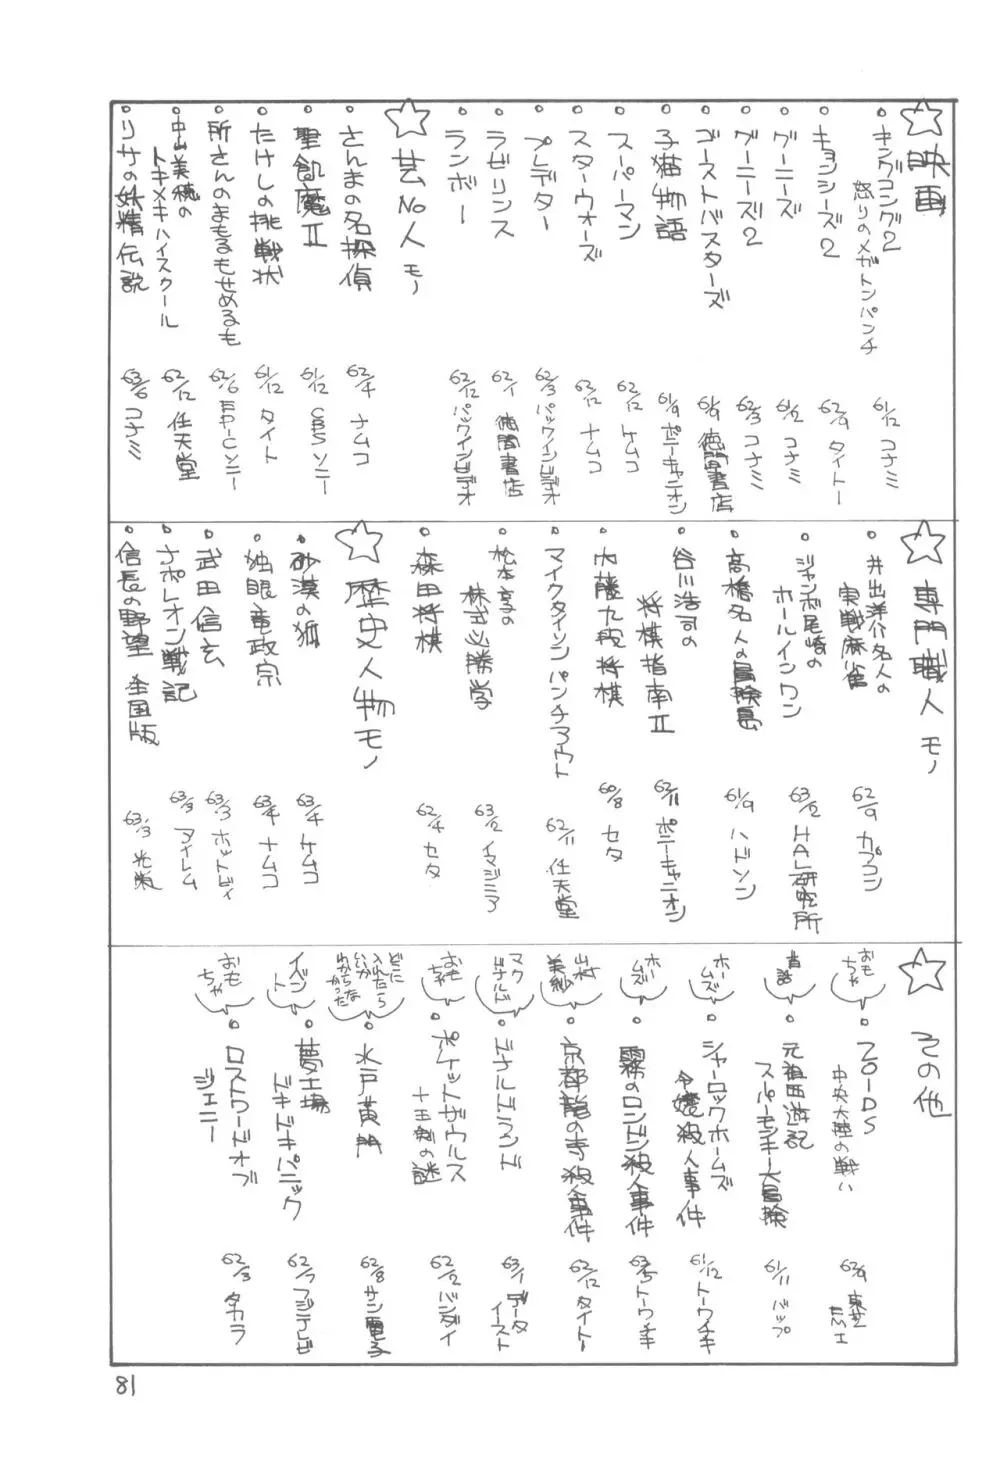 ☆映画
・キングコング2
怒りのメガトンパンチ
61/12 コナミ
・キョンシーズ2
62/9 タイトー
・グーニーズ
61/2 コナミ
・グーニーズ2
62/3 コナミ
・ゴーストバスターズ
61/9 徳間書店
・子猫物語
61/9 ポニーキャニオン
・スーパーマン
62/12 ケムコ
・スターウォーズ
62/12 ナムコ
・プレデター
62/3 パックインビデオ
・ラビリンス
62/1 徳間書店
・ランボー
62/12 パックインビデオ
☆芸NO人モノ
・さんまの名探偵
62/4 ナムコ
・聖飢魔Ⅱ
61/12 CBSソニー
・たけしの挑戦状
61/12 タイト
・所さんのまもるもせめるも
62/6 EPICソニー
・中山美穂の
トキメキハイスクール
62/12 任天堂
・リサの妖精伝説
63/6 コナミ
☆専門職人モノ
・井出洋介名人の
実戦麻雀
62/9 カプコン
・ジャンボ尾崎の
ホールインワン
63/2 HAL研究所
・高橋名人の冒険島
61/9 ハドソン
・谷川浩司の
将棋指南Ⅱ
62/11 ポニーキャニオン
・内藤九段将棋
60/8 セタ
・マイクタイソンパンチアウト
62/11 任天堂
・松本亨の
株式必勝学
63/2 イマジニア
・森田将棋
62/4 セタ
☆歴史人物モノ
・砂漠の狐
63/4 ケムコ
・独眼竜政宗
63/4 ナムコ
・武田信玄
63/3 ホットビィ
・ナポレオン戦記
63/3 アイレム
・信長の野望 全国版
63/3 光栄
☆その他
おも
ちゃ
・ZOIDS
中央大陸の戦い
62/9 東芝
EMI
昔話
・元祖西遊記
スーパーモンキー大冒険
61/11 バップ
ホー
ムズ
・シャーロックホームズ
令嬢殺人事件
61/12 トーワチキ
ホー
ムズ
・霧のロンドン殺人事件
63/5 トーワチキ
山村
美紗
・京都龍の寺殺人事件
62/12 タイトー
マク
ドナルド
・ドナルドランド
63/1 データ
イースト
おも
ちゃ
・ポケットザウルス
十王剣の謎
62/2 バンダイ
どこに
入れたら
いいか
わからな
かった
・水戸黄門
62/8 サン電子
イベン
ト
・夢工場
ドキドキパニック
62/7 フジテレビ
おも
ちゃ
・ロストワードオブ
ジェニー
62/3 タカラ
81